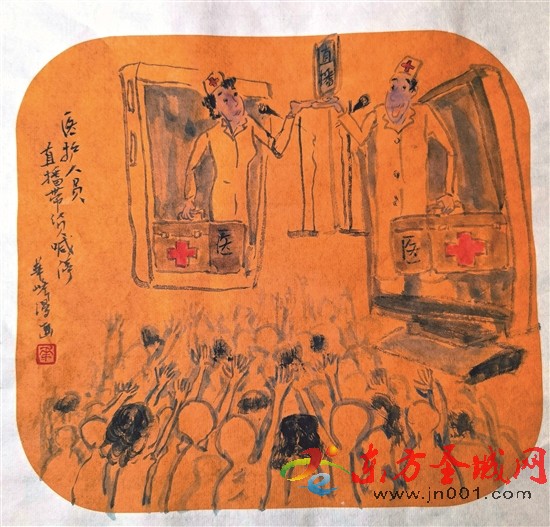 直播
医护人员
直播带货喊停
華峰漫画
医
医
东方圣城网
www.jn001.com